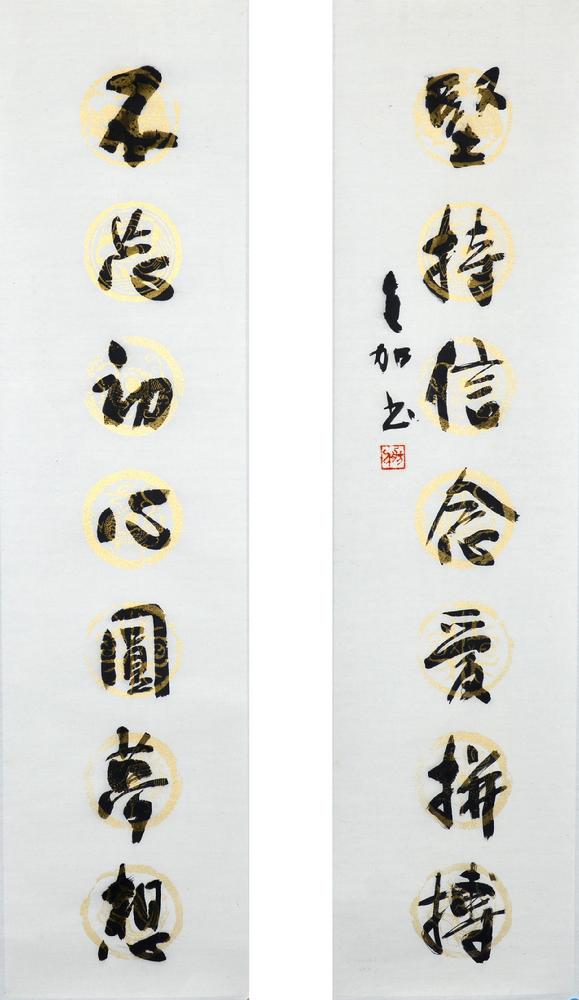 堅持信念愛拼搏
加书
不忘初心圓夢想